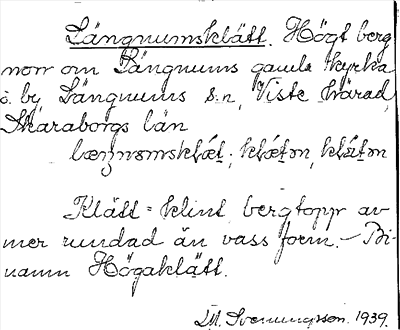 Längnumsklätt. Högt berg
norr om Längnums gamla kyrka
o. by, Längnums s:n, Viste härad,
Skaraborgs län
klǽtən, klǽtən
Klätt = klint bergtopp av
mer rundad än vass form. - Bi-
namn Högaklätt.
M. Svenungsson. 1939.